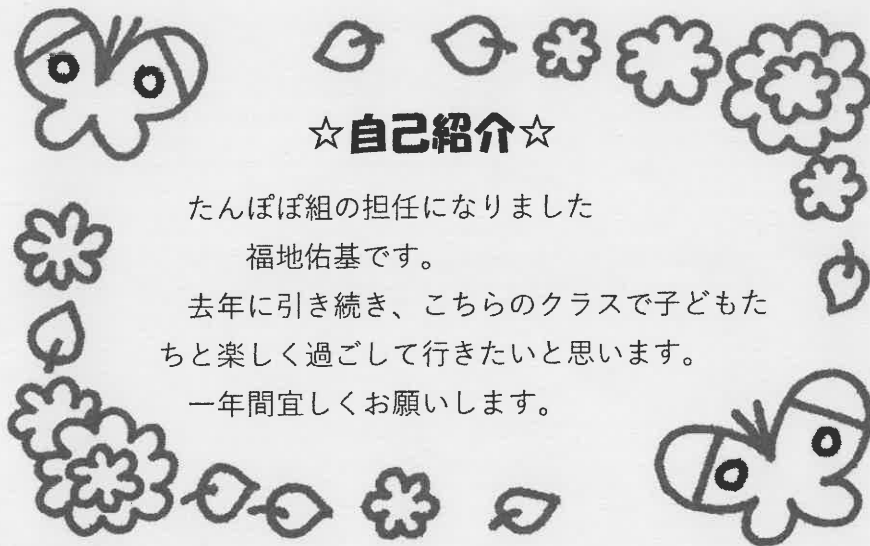 ☆自己紹介☆
たんぽぽ組の担任になりました
福地佑基です。
去年に引き続き、こちらのクラスで子どもた
ちと楽しく過ごして行きたいと思います。
一年間宜しくお願いします。